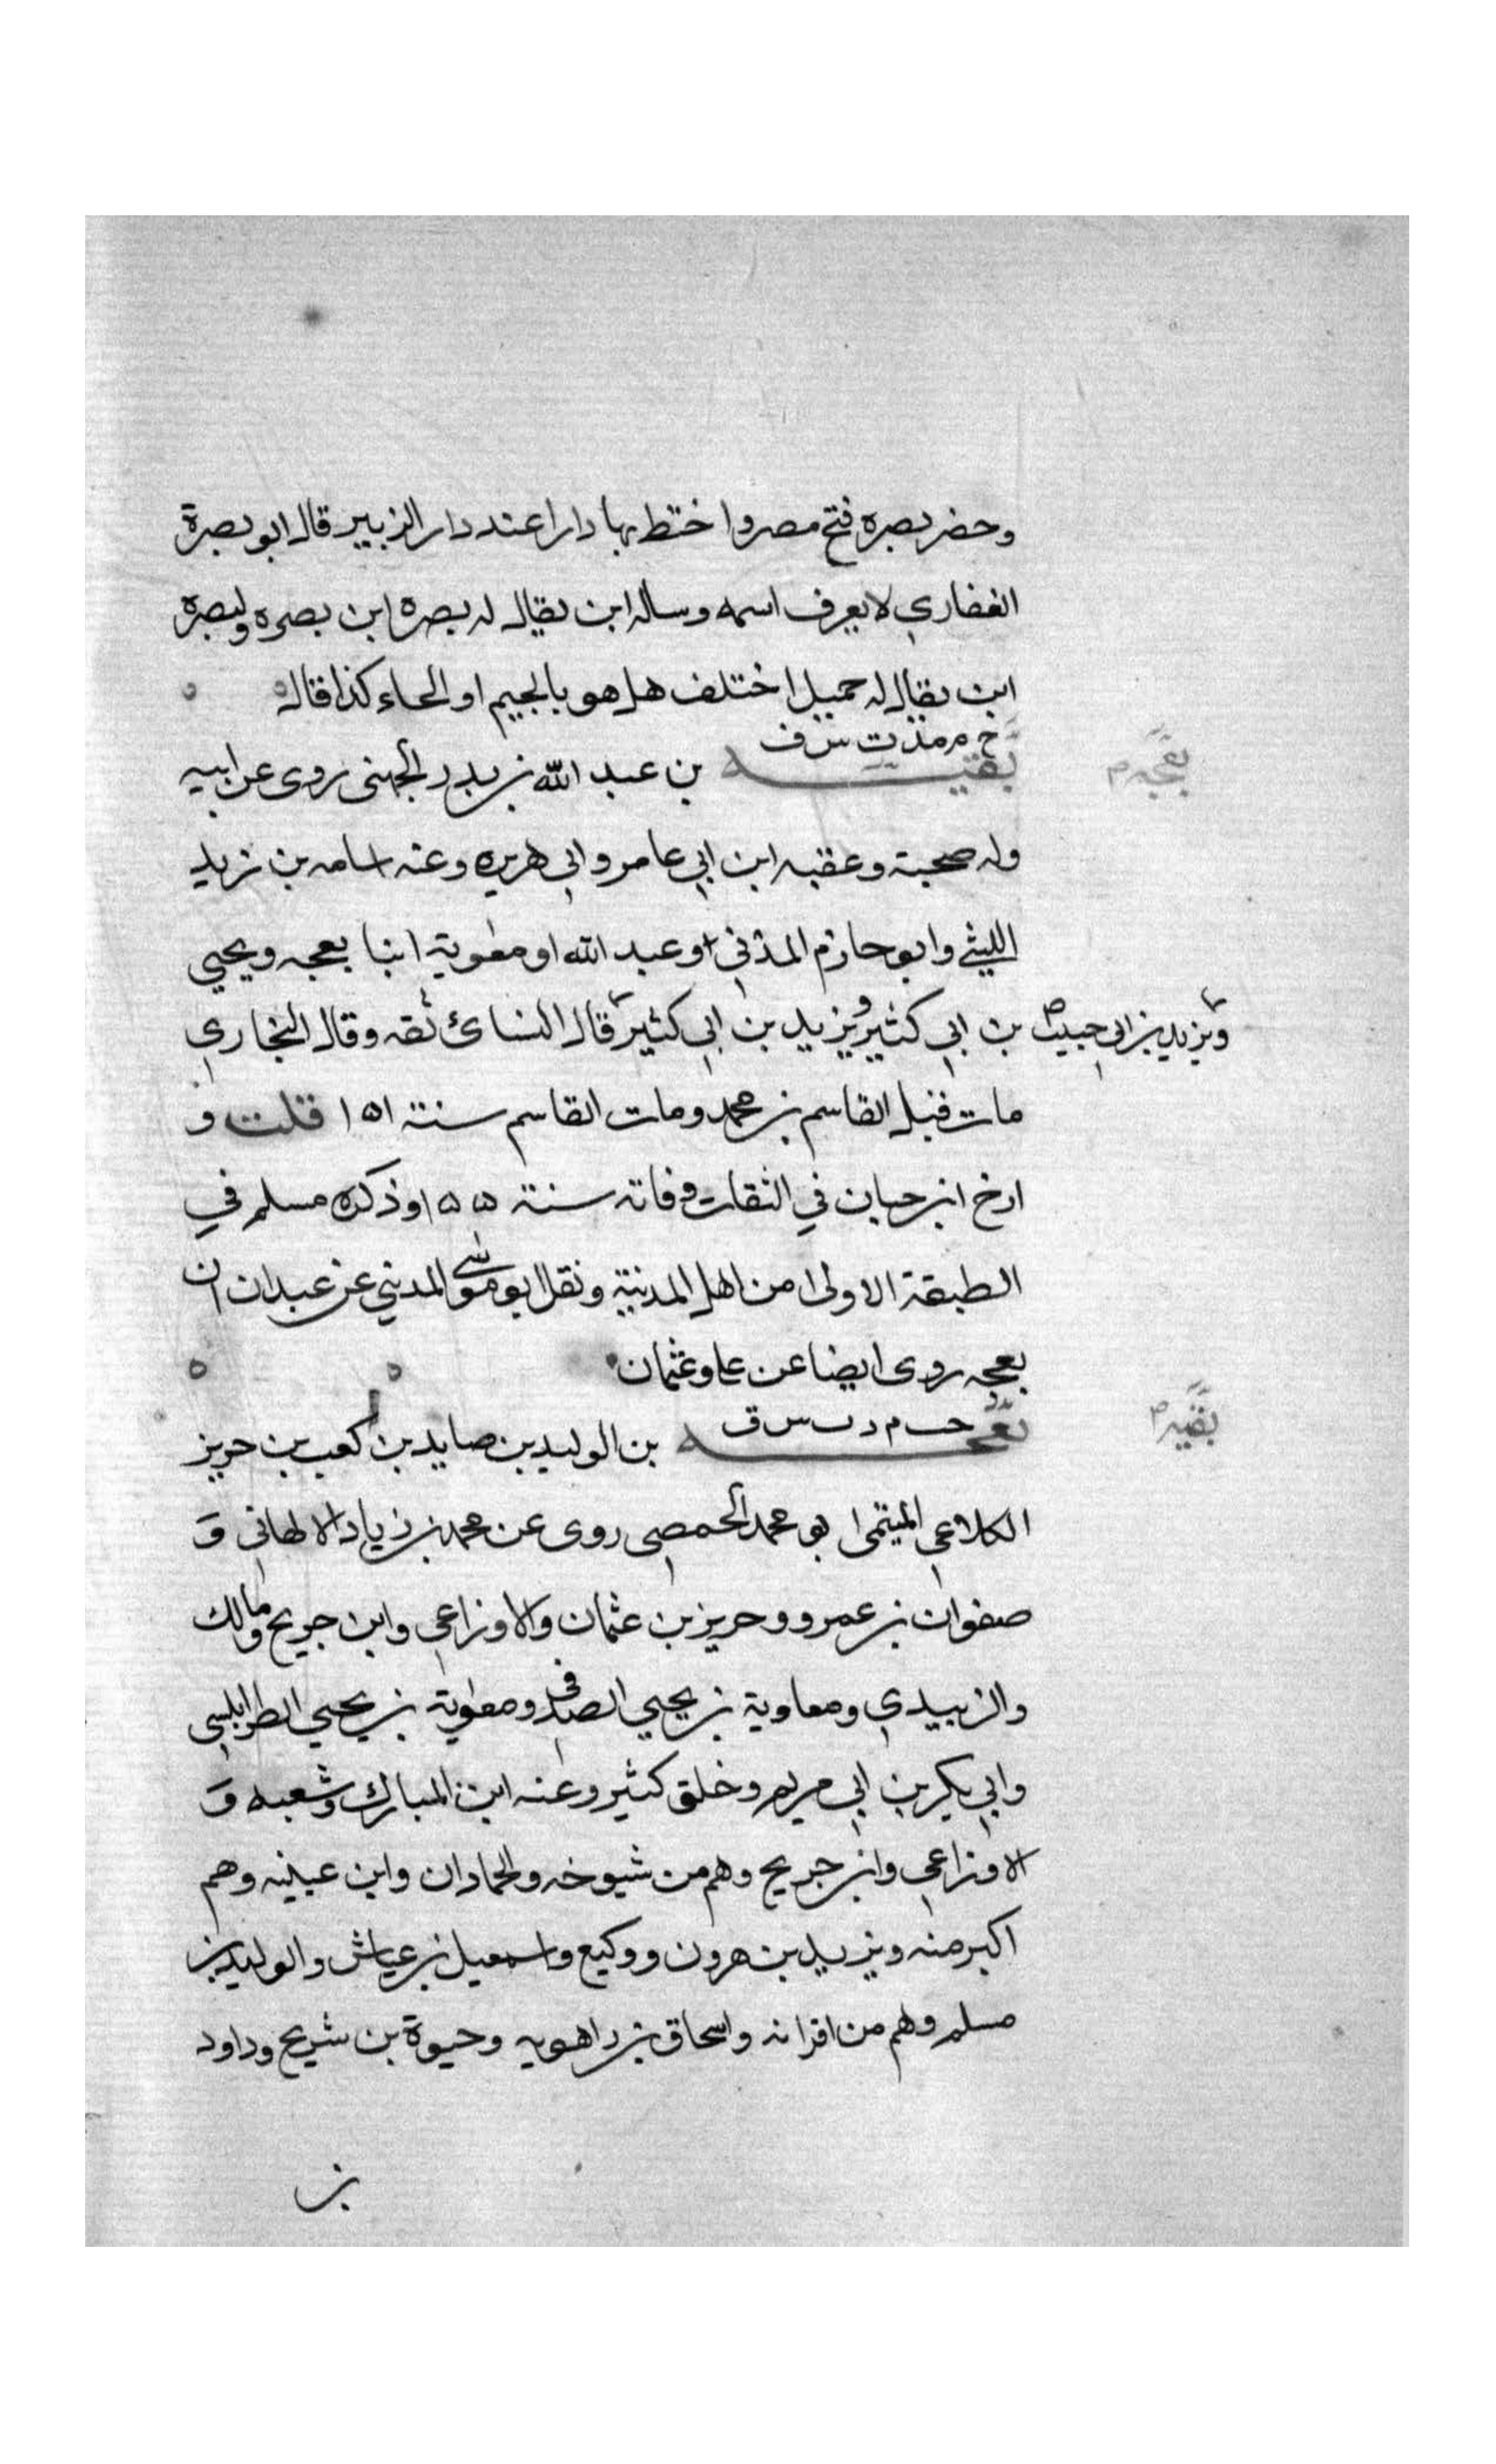 وحضر بصره فتح مصر واختط بها دارا عند دار الزبير قال ابو بصرة
الغفاري لا يعرف اسمه وساله ابن يقال له بصرة ابن بصره ولبصرة
ابن يقال له حميل اختلف هل هو بالجيم او الحاء كذا قاله ه
خ م مد ت س ق
بقيه بن عبد الله بن بدر الجهني روى عن ابيه
بعجه م
وله صحبة وعقبه ابن ابي عامر وابي هريره وعنه اسامه بن زيد
الليثي وابو حازم المدني او عبد الله او معوية ابنا بعجه ويحيى
بن ابي كثير ويزيد بن ابي كثير قال النسائ ثقه وقال البخاري
ويزيد بن ابي حبيب ص
مات قبل القاسم بن محمد ومات القاسم سنة ١٥١ قلت و
ارخ ابن حبان في الثقات وفاته سنة ١٥٥ وذكره مسلم في
الطبقة الاولى من اهل المدينة ونقل ابو موسى المديني عن عبدان ان
بعجه روى ايضا عن علي وعثمان ه ه
خت م د ت س ق
بعجه بن الوليد بن صايد بن كعب بن حريز
بقيه م
الكلاعي الميتمى ابو محمد الحمصي روى عن محمد بن زياد الالهاني و
صفوان بن عمرو وحريز بن عثمان والاوزاعي وابن جريج ومالك
والزبيدي ومعاوية بن يحيي الصدفي ومعوية بن يحيي الطرابلسي
وابي بكر بن ابي مريم وخلق كثير وعنه ابن المبارك وشعبه و
الاوزاعي وابن جريج وهم من شيوخه والحمادان وابن عيينه وهم
اكبر منه ويزيد بن هرون ووكيع واسمعيل بن عياش والوليد بن
مسلم وهم من اقرانه واسحاق بن راهويه وحيوة بن شريح وداود
بن